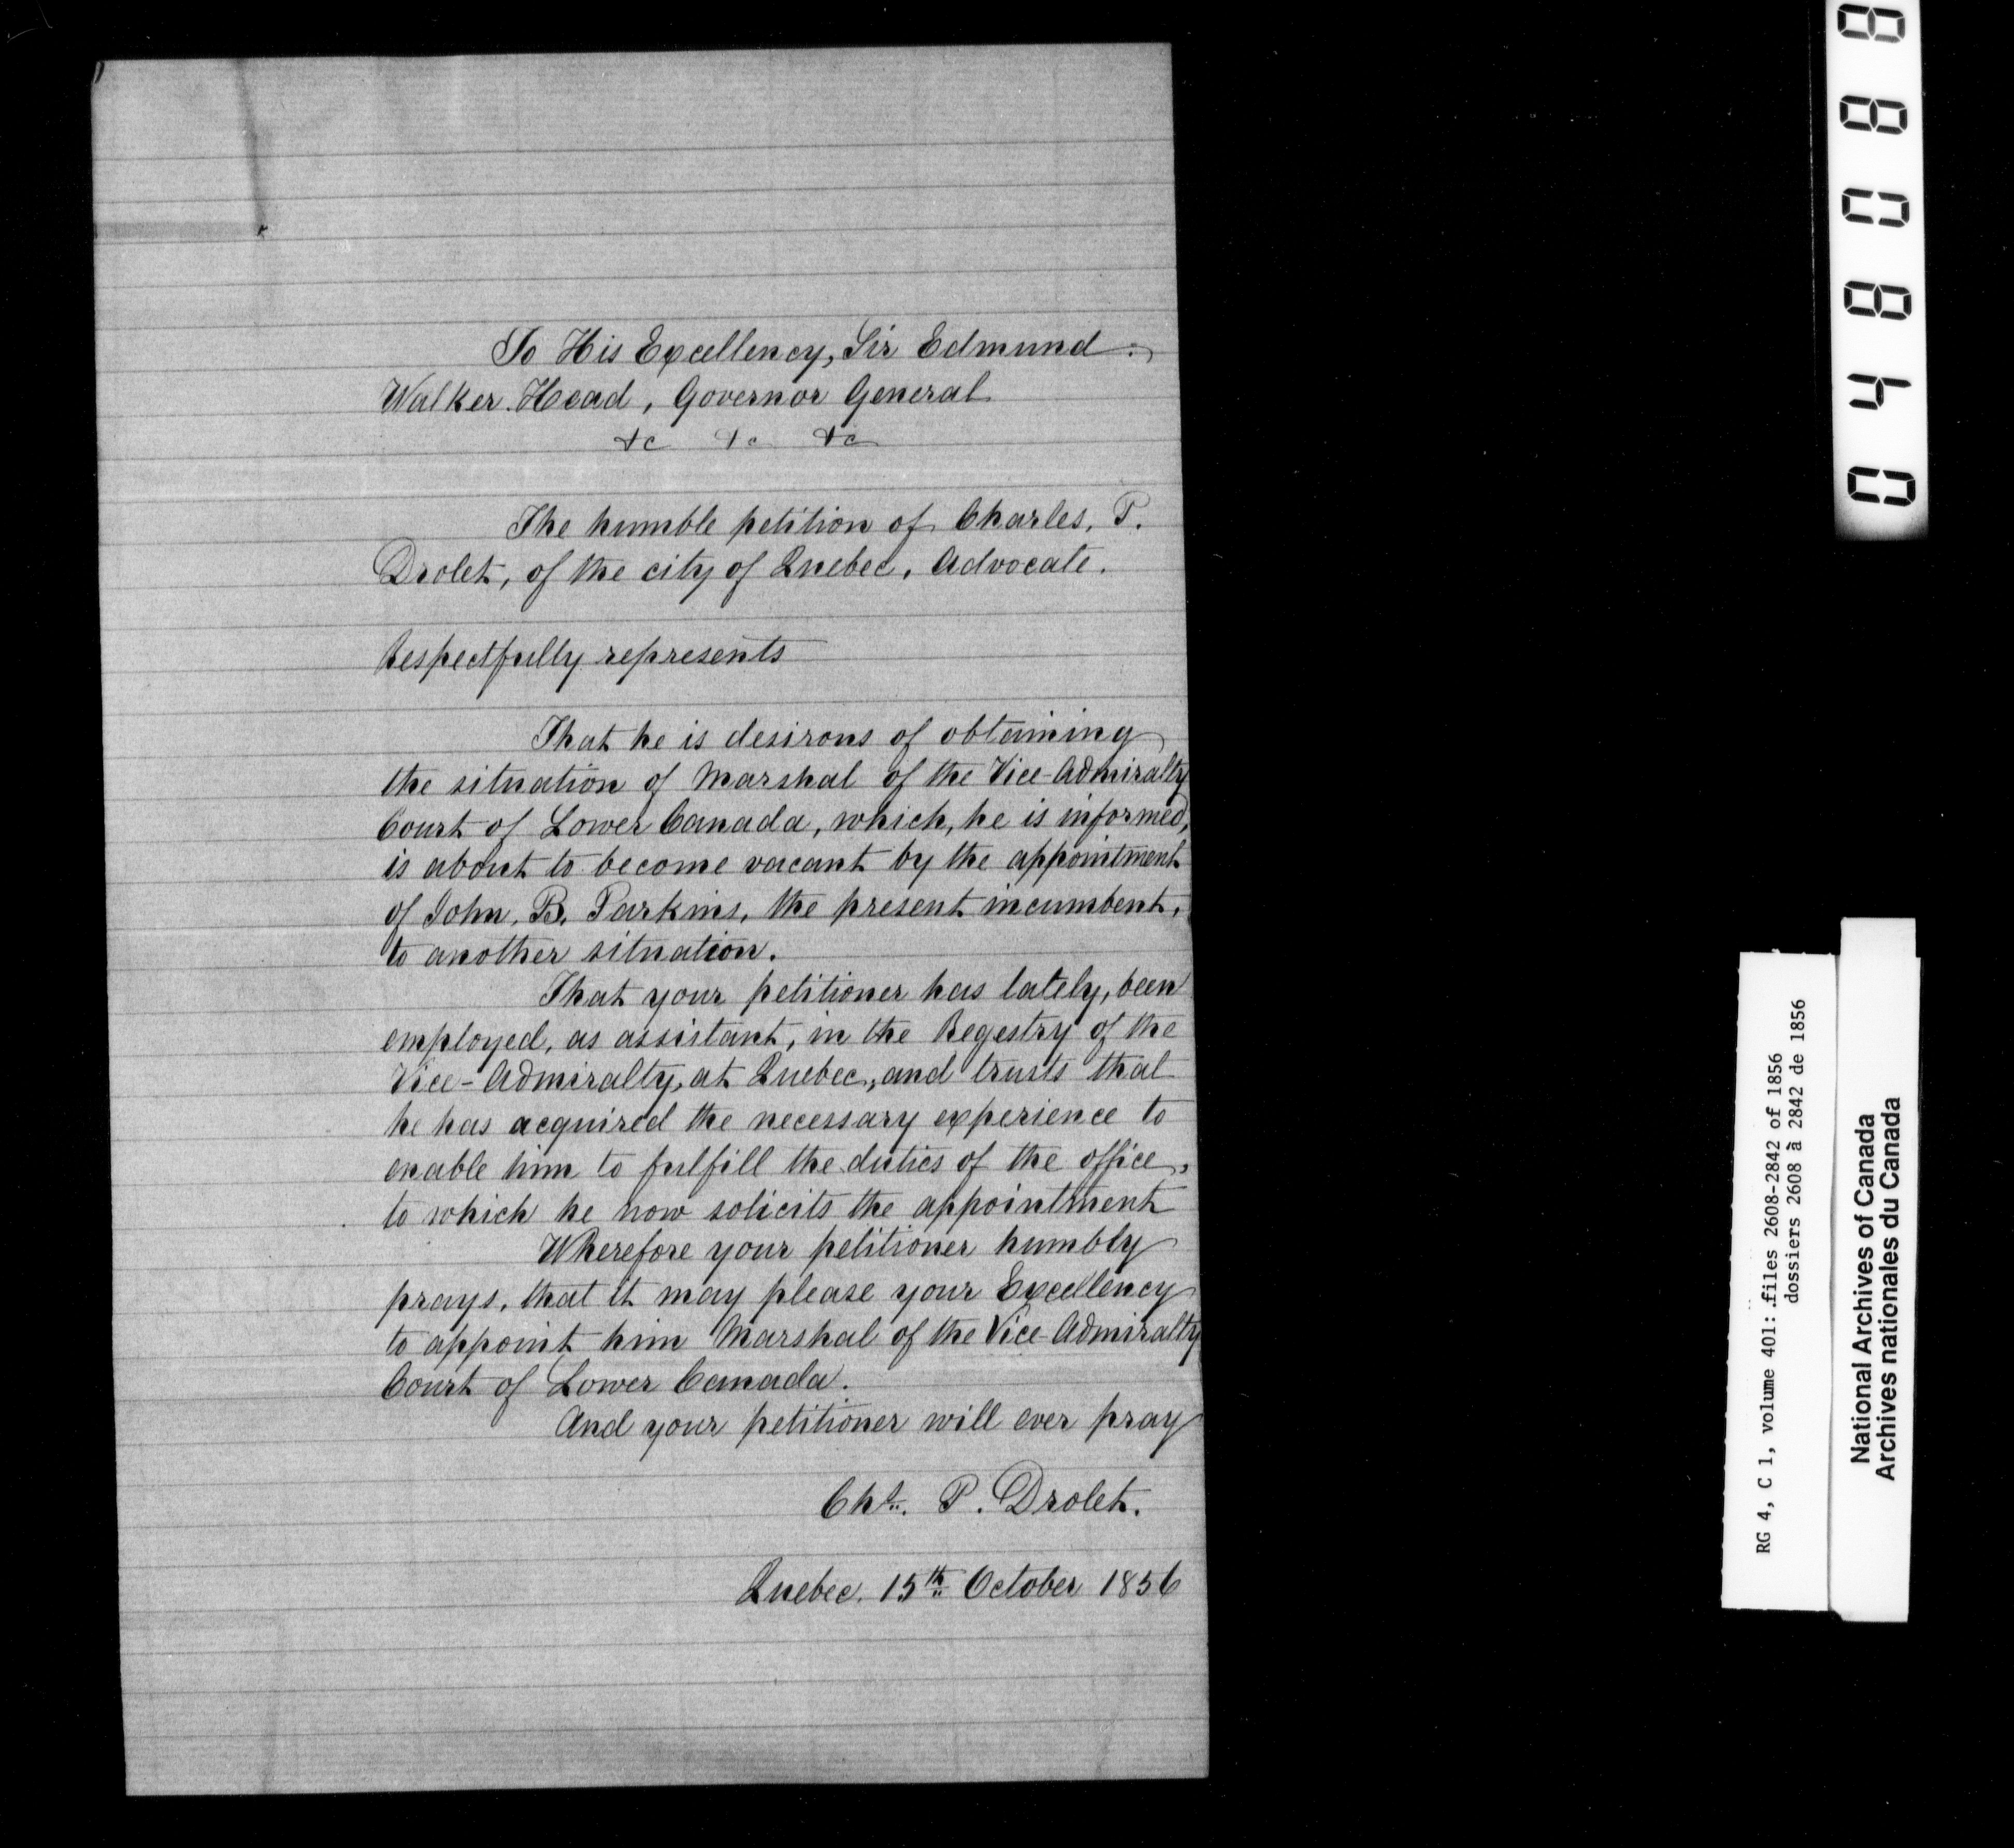 To His Excellency, Sir Edmund
Walker Head, Governor General
&c &c &c
The humble petition of Charles, P.
Drolet, of the city of Quebec, Advocate.
Respectfully represents
That he is desirous of obtaining
the situation of Marshal of the Vice-Admiralty
Court of Lower Canada, which, he is informed,
is about to become vacant by the appointment
of John, B. Parkins, the present incumbent,
to another situation.
That your petitioner has lately, been
employed, as assistant, in the Regestry of the
Vice-Admiralty, at Quebec, and trusts that
he has acquired the necessary experience to
enable him to fulfill the duties of the office,
to which he now solicits the appointment
Wherefore your petitioner humbly
prays, that it may please your Excellency
to appoint him Marshal of the Vice-Admiralty
Court of Lower Canada.
And your petitioner will ever pray
Chs. P. Drolet.
Quebec. 15th October 1856
048088
RG 4, C 1, volume 401: files 2608-2842 of 1856
dossiers 2608 à 2842 de 1856
National Archives of Canada
Archives nationales du Canada